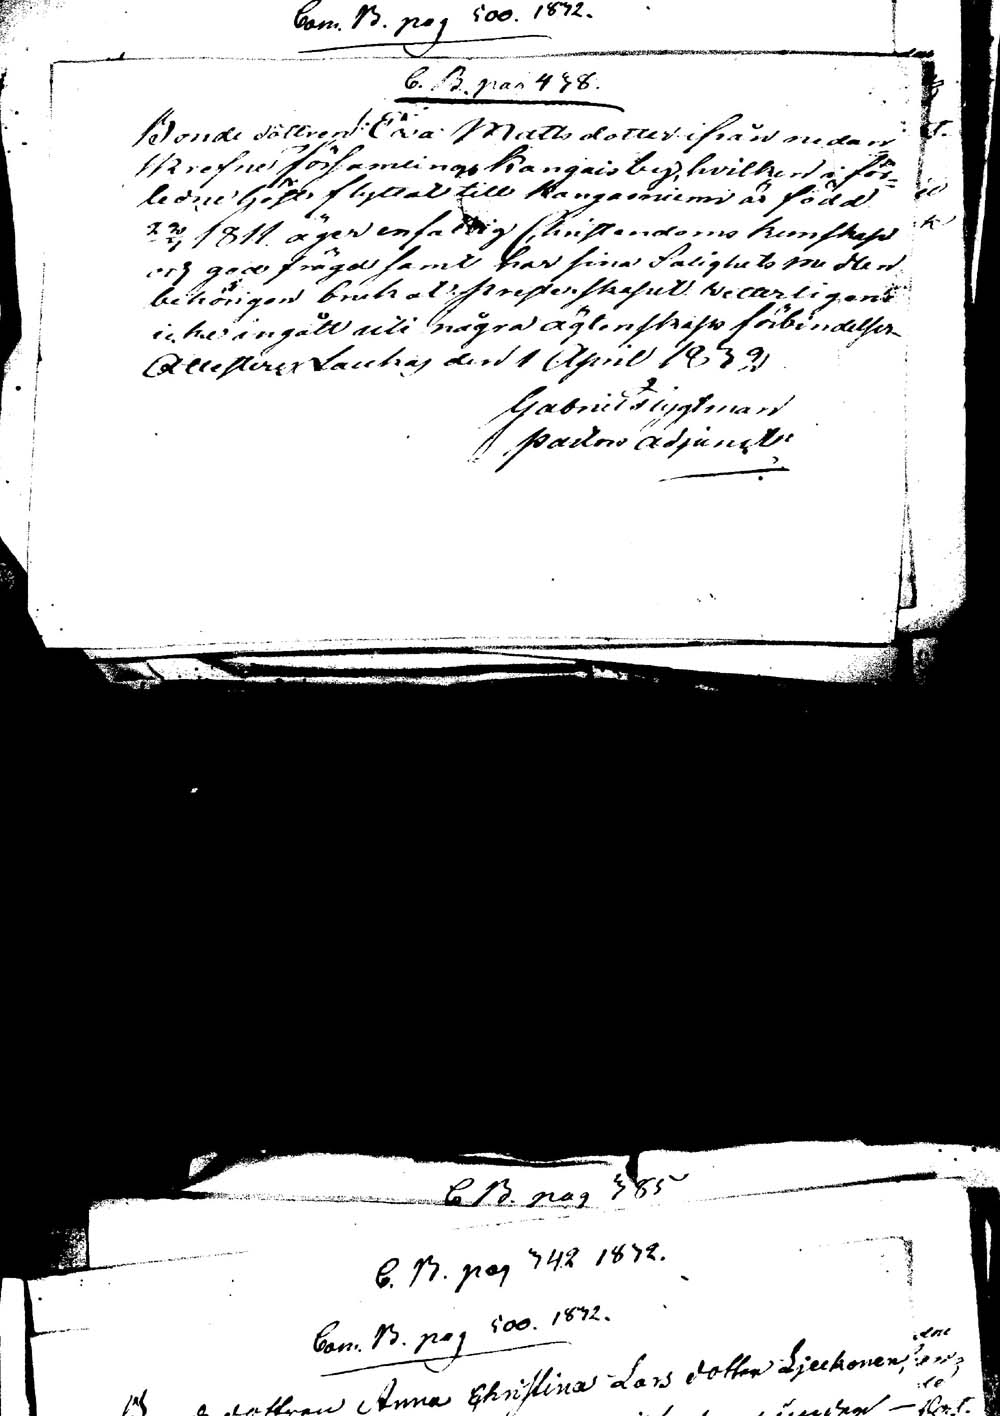 Com. B. pag 500. 1832.
C. B. pag 438.
Bonde dottren Eva Matts dotter ifrån nedan
skrefne församlings Kangais by, hvilken i för-
ledne Höst flyttat till Kangasniemi är född
1811. äger enfaldig Christendoms kunskap
och god frägd samt har sina Salighets medlen
behörigen brukat. Presterskapet vetterligens
icke ingått uti några Äqtenskaps förbindelser
Attesterar Laukas den 1 April 1832
Gabriel
pastors Adjunct.
C. B. pag 385
C. B. pag 342 1832.
Com. B. pag 500. 1832.
dottren Anna Christina Lars dotter